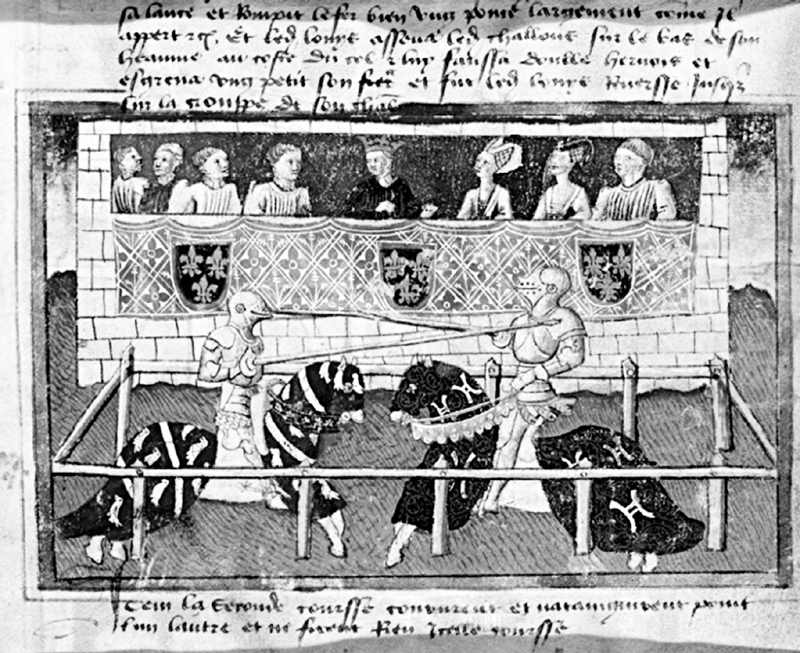 sa lance et Rompit le fer bien ung poulce largement come Il
appert &c. Et led louys assena led challons sur le bas de son
heaume au coste du col & luy faussa double hernois et
esgrena ung petit son fer et fut led louys Reversse Jusqs
sur la crouppe de son chal
Item la Seconde coursse coururent et nataignirent point
lun lautre et ne firent Rien Icelle coursse